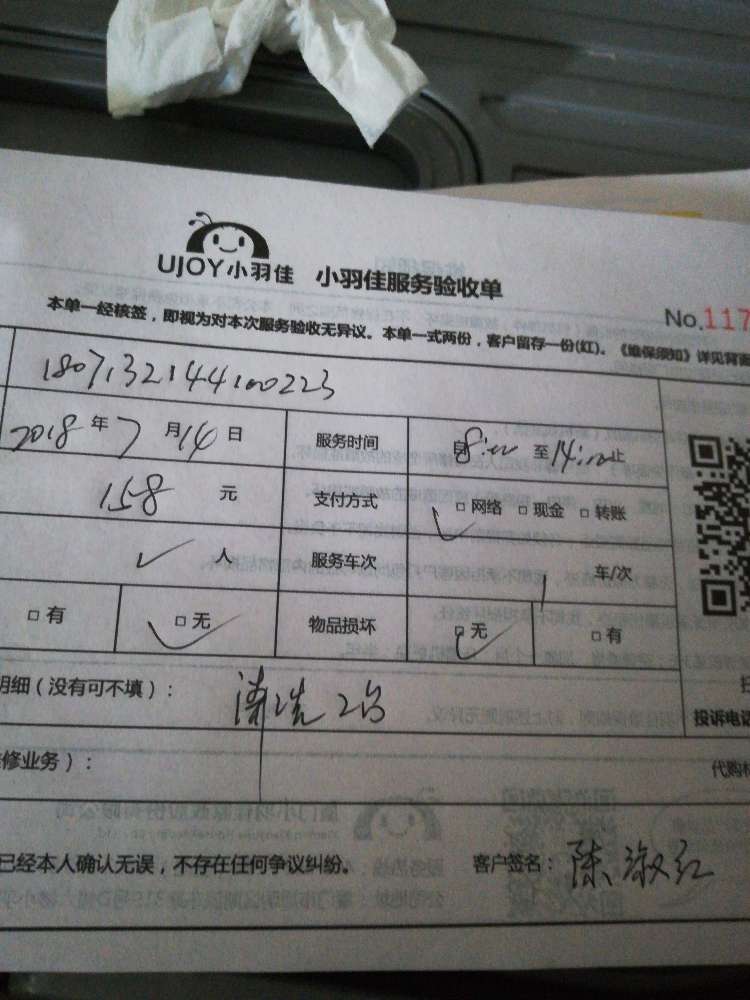 UJOY小羽佳 小羽佳服务验收单
No.117
本单一经核签，即视为对本次服务验收无异议。本单一式两份，客户留存一份(红)。《维保须知》详见背面
1807132144100223
2018年7月14日 服务时间 自8:00至14:00止
158元 支付方式 □网络 □现金 □转账
人 服务车次 车/次
□有 □无 物品损坏 □无 □有
明细（没有可不填）： 清洗
投诉电话
修业务）：
代购
已经本人确认无误，不存在任何争议纠纷。 客户签名：陈淑红